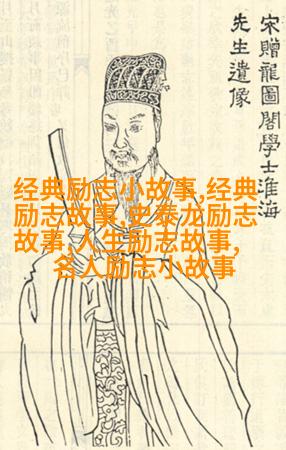 宋贈龍圖閣學士淮海
先生遺像
经典励志小故事,经典
励志故事,史泰龙励志
故事,人生励志故事,
名人励志小故事